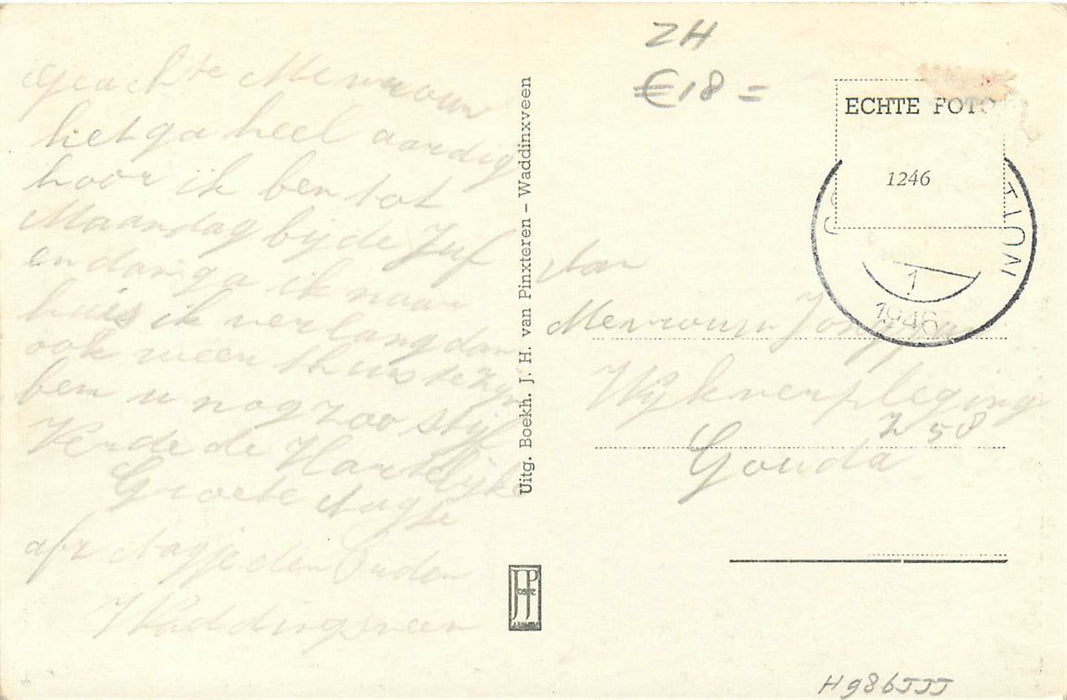 Geachte Mevrouw
het ga heel aardig
hoor ik ben tot
Maandag by de Juf
en dan ga ik naar
huis ik verlang dan
ook weer thuis te zyn
ben u nog zoo styf
Verde de Hartelyke
Groete
afz den Ouden
Waddingsveen
Uitg. Boekh. J. H. van Pinxteren – Waddinxveen
JP
ZH
€18 =
ECHTE FOTO
1246
1
1946
Aan
Mevrouw
Wykverpleging
Z 58
Gouda
H986JJJ